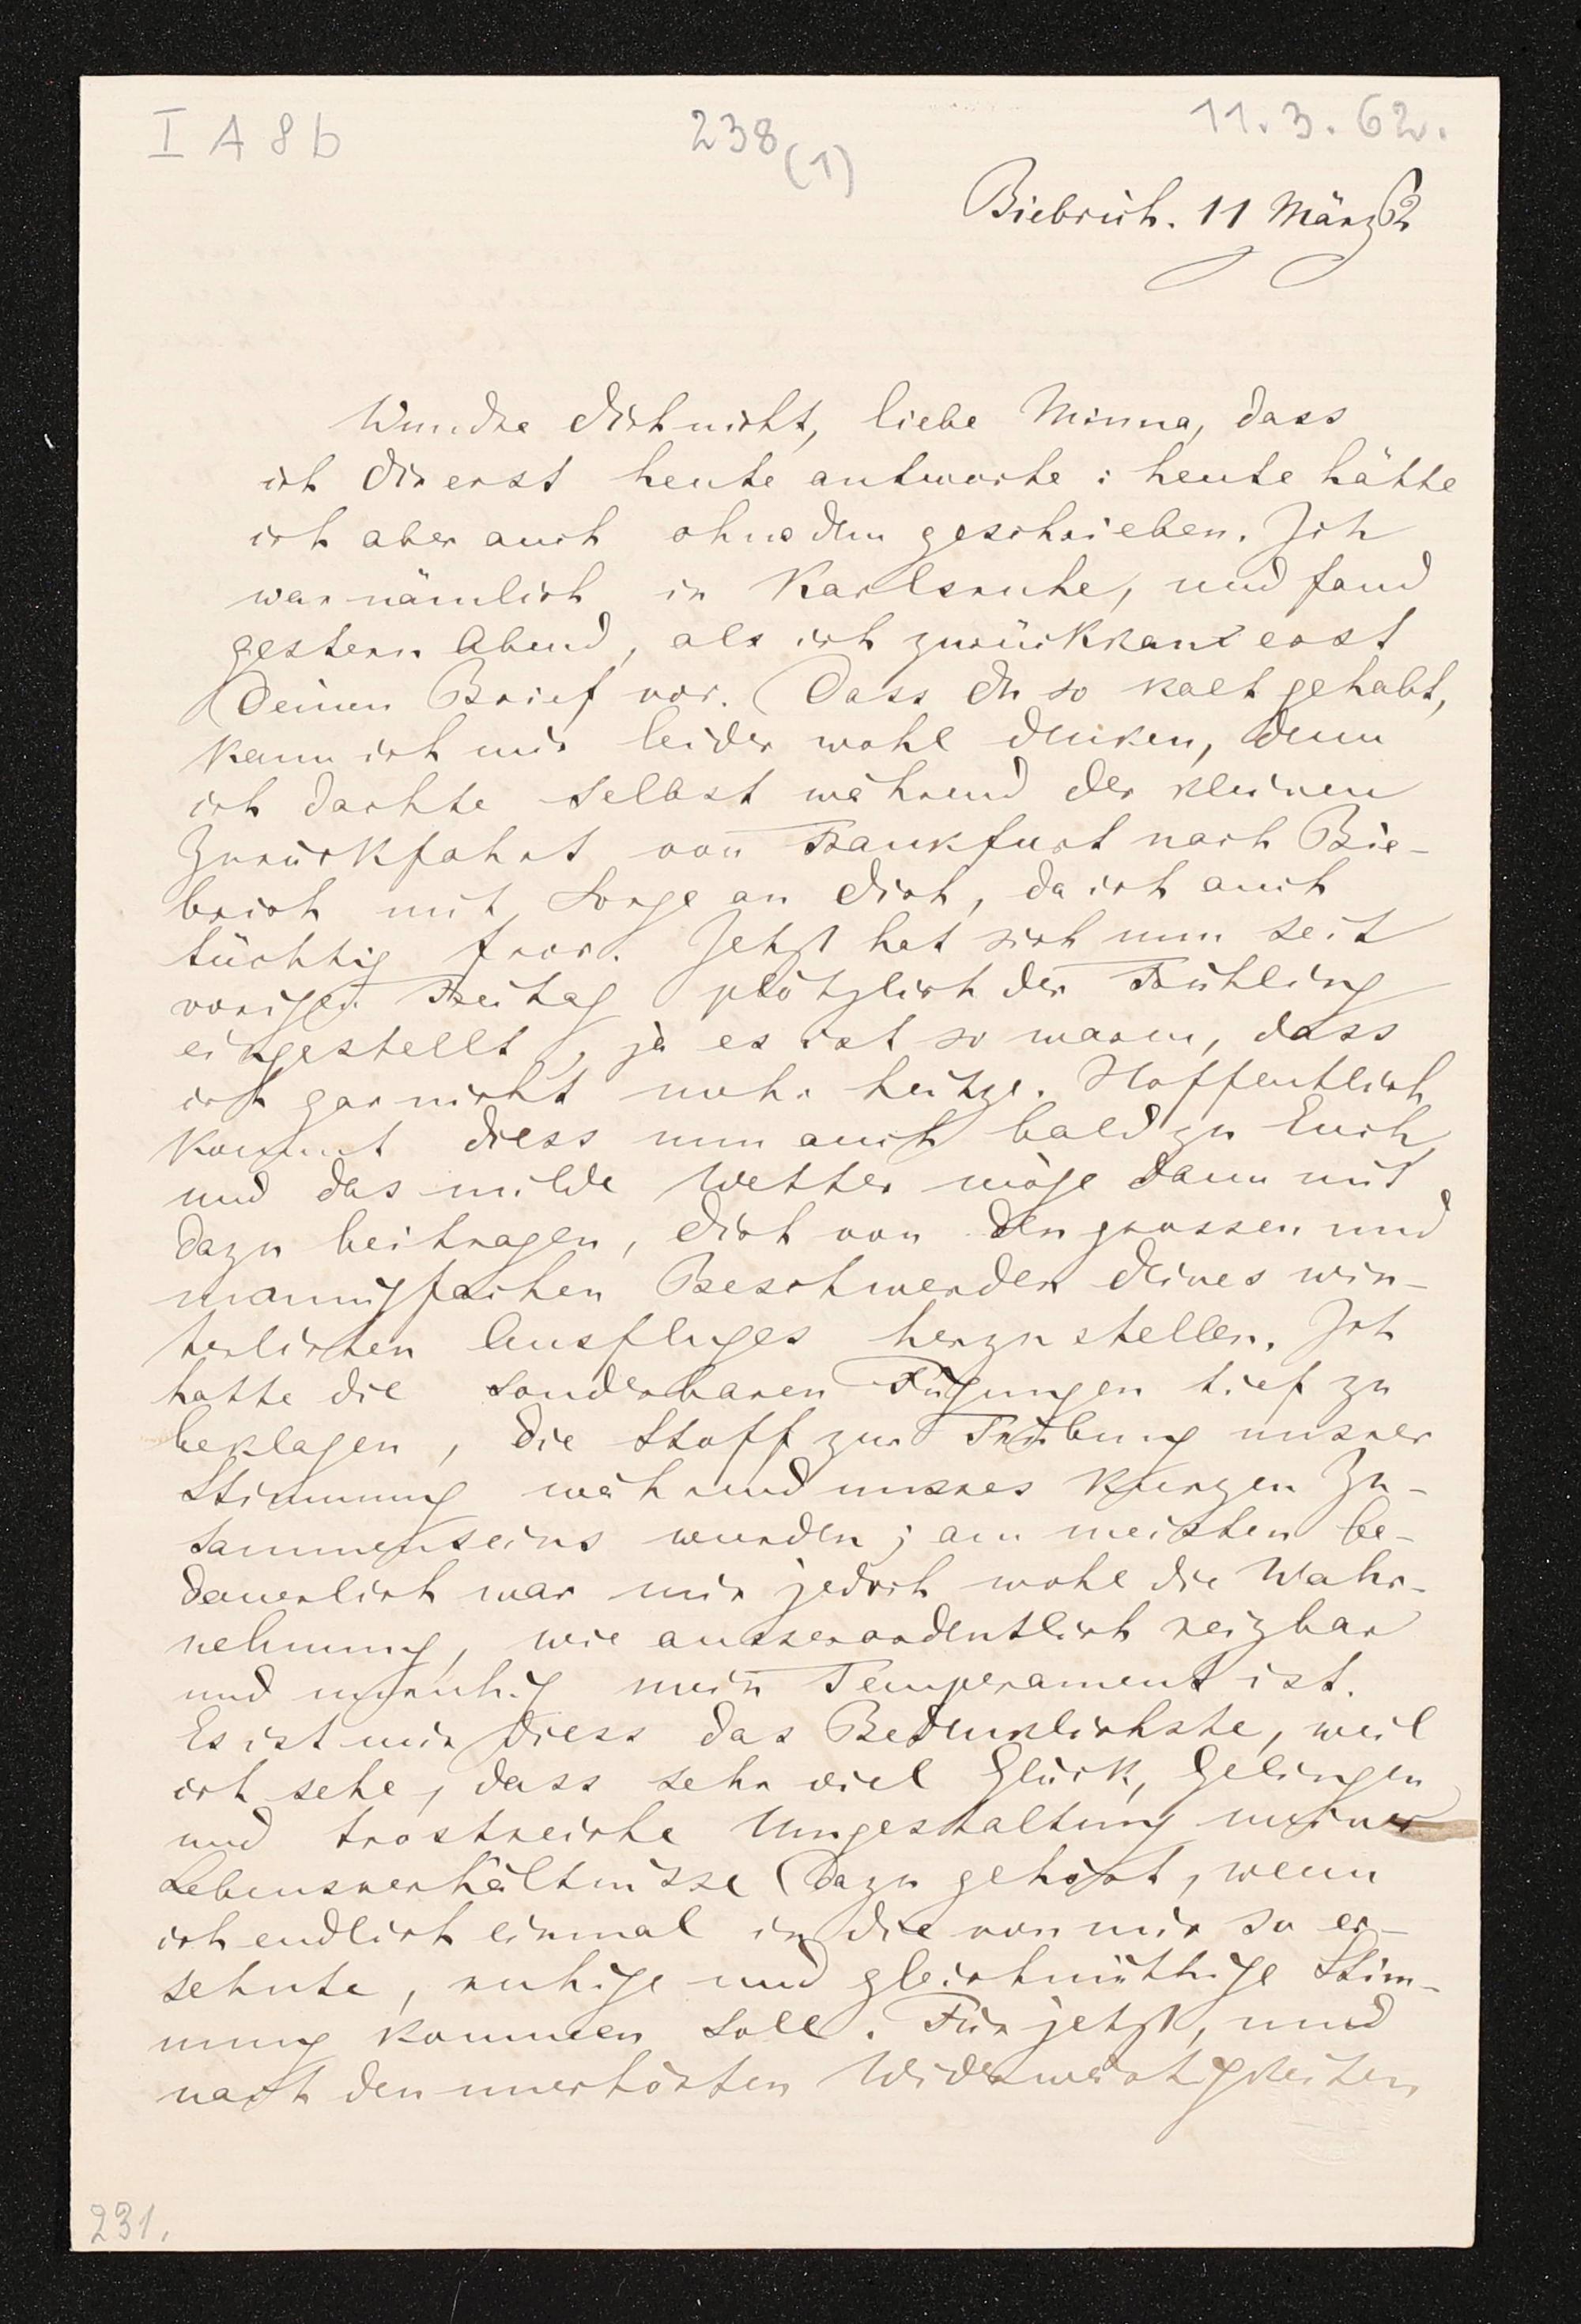 I A 8 b
238 (1)
11. 3. 62.
Biebrich. 11 März 62
Wundre Dich nicht, liebe Minna, dass
ich Dir erst heute antworte: heute hätte
ich aber auch ohnedem geschrieben. Ich
war nämlich in Karlsruhe, und fand
gestern Abend, als ich zurückkam erst
Deinen Brief vor. Dass Du so kalt gehabt,
kann ich mir leider wohl denken, denn
ich dachte selbst während der kleinen
Zurückfahrt von Frankfurt nach Bie-
brich mit Sorge an Dich, da ich auch
tüchtig fror. Jetzt hat sich nun seit
vorigen Freitag plötzlich der Frühling
eingestellt, ja es ist so warm, dass
ich gar nicht mehr heitze. Hoffentlich
kommt diess nun auch bald zu Euch
und das milde Wetter möge dann mit
dazu beitragen, Dich von den grossen und
mannigfachen Beschwerden Deines win-
terlichen Ausfluges herzustellen. Ich
hatte die sonderbaren Fügungen tief zu
beklagen, die Stoff zur Trübung unsrer
Stimmung während unsres kurzen Zu-
sammenseins wurden; am meisten be-
dauerlich war mir jedoch wohl die Wahr-
nehmung, wie ausserordentlich reizbar
und unruhig mein Temperament ist.
Es ist mir diess das Bedenklichste, weil
ich sehe, dass sehr viel Glück, Gelingen
und trostreiche Umgestaltung meiner
Lebensverhältnisse dazu gehört, wenn
ich endlich einmal in die von mir so er-
sehnte, ruhige und gleichmüthige Stim-
mung kommen soll. Für jetzt, und
nach den unerhörten Widerwärtigkeiten
231.